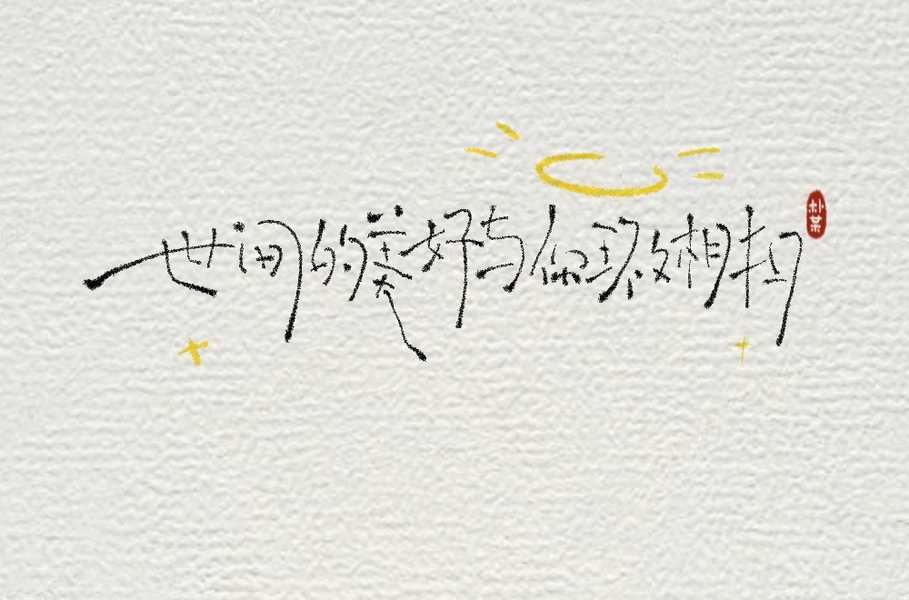 世间的美好与你环环相扣
朴某